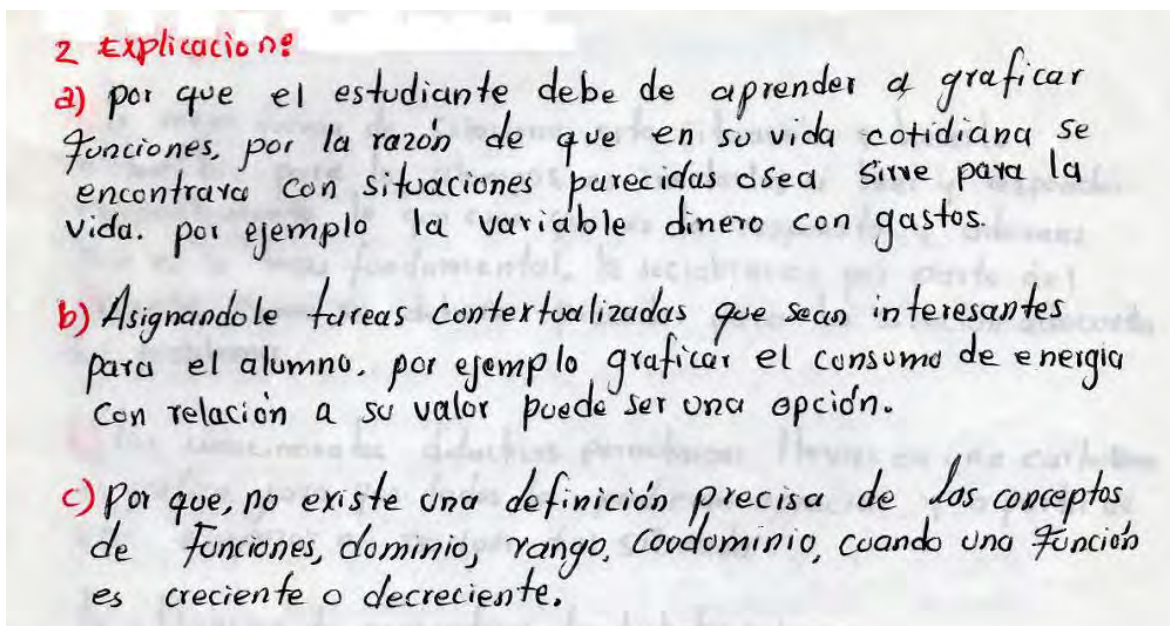 2 Explicación:
a) por que el estudiante debe de aprender a graficar
funciones, por la razón de que en su vida cotidiana se
encontrara con situaciones parecidas osea sirve para la
vida. por ejemplo la variable dinero con gastos.
b) Asignandole tareas contextualizadas que sean interesantes
para el alumno, por ejemplo graficar el consumo de energia
con relación a su valor puede ser una opción.
c) Por que, no existe una definición precisa de los conceptos
de funciones, dominio, rango, coodominio, cuando una función
es creciente o decreciente.